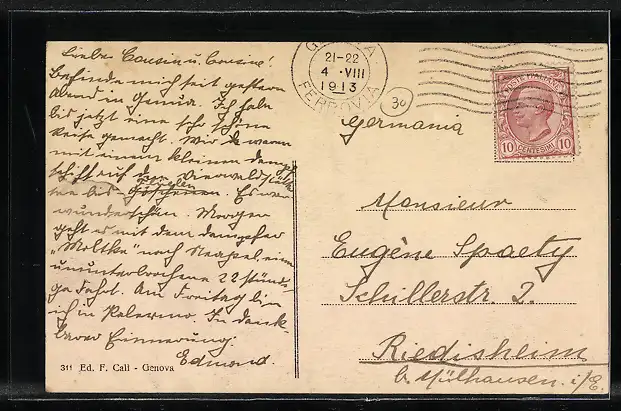 Liebe Cousin u. Cousine!
Befinde mich seit gestern
Abend in Genua. Ich habe
bis jetzt eine sehr schöne
Reise gemacht. Wir waren
mit einem kleinen Dampf-
schiff auf dem Vierwaldstätter-
see bis Flüelen Göschenen. Es war
wunderschön. Morgen
geht es mit dem Dampfer
"Moltke" nach Neapel, eine
ununterbrochene 22 stünd-
ge Fahrt. Am Freitag bin
ich in Palermo. In dank-
barer Erinnerung.
Edmond.
311 Ed. F. Cali - Genova
GENOVA
21-22
4 · VIII
1913
FERROVIA
30
POSTE ITALIANE
10 CENTESIMI 10
Germania
Monsieur
Eugène Spaety
Schillerstr. 2.
Riedisheim
b. Mülhausen. i/E.